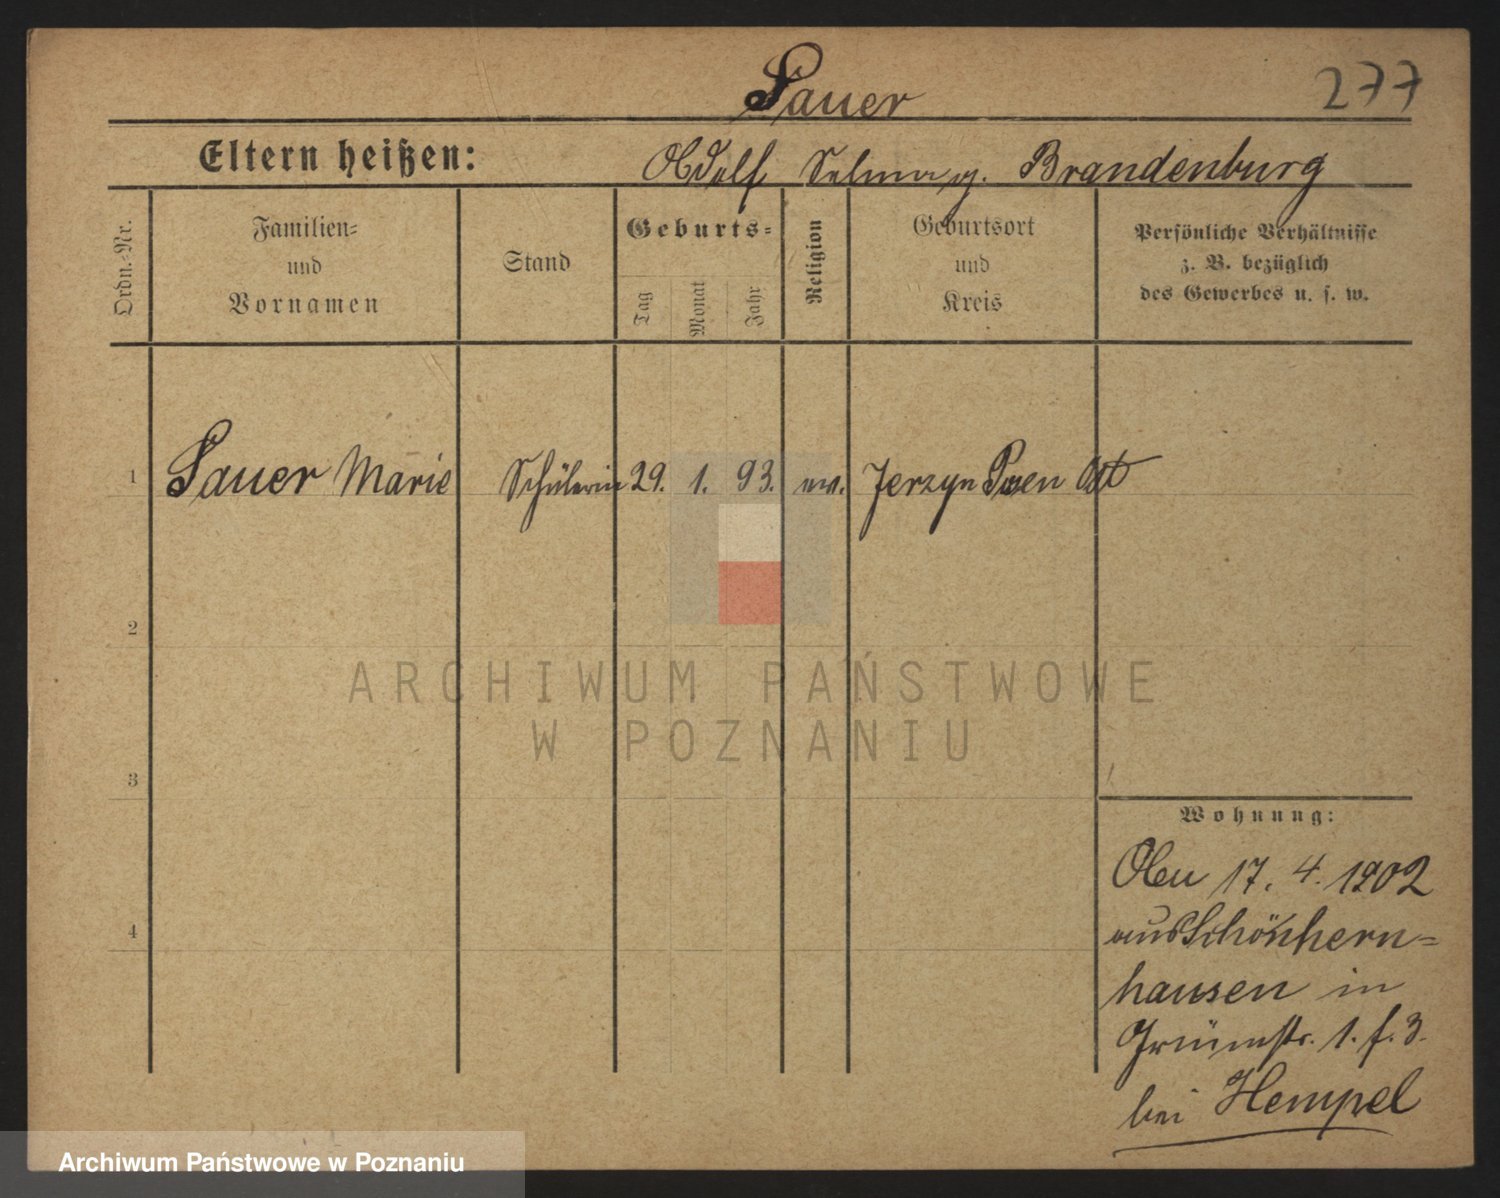 Sauer
277
Eltern heißen:
Adolf Selma g. Brandenburg
Ordn.-Nr.
Familien-
und
Vornamen
Stand
Geburts-
Tag
Monat
Jahr
Religion
Geburtsort
und
Kreis
Persönliche Verhältnisse
z. B. bezüglich
des Gewerbes u. s. w.
1 Sauer Marie Schülerin 29. 1. 93. ev. Jerzyn Posen Ost
2
3
4
ARCHIWUM PAŃSTWOWE
W POZNANIU
Wohnung:
17. 4. 1902
aus Schönhern-
hausen in
1. f. 3.
bei Hempel
Archiwum Państwowe w Poznaniu